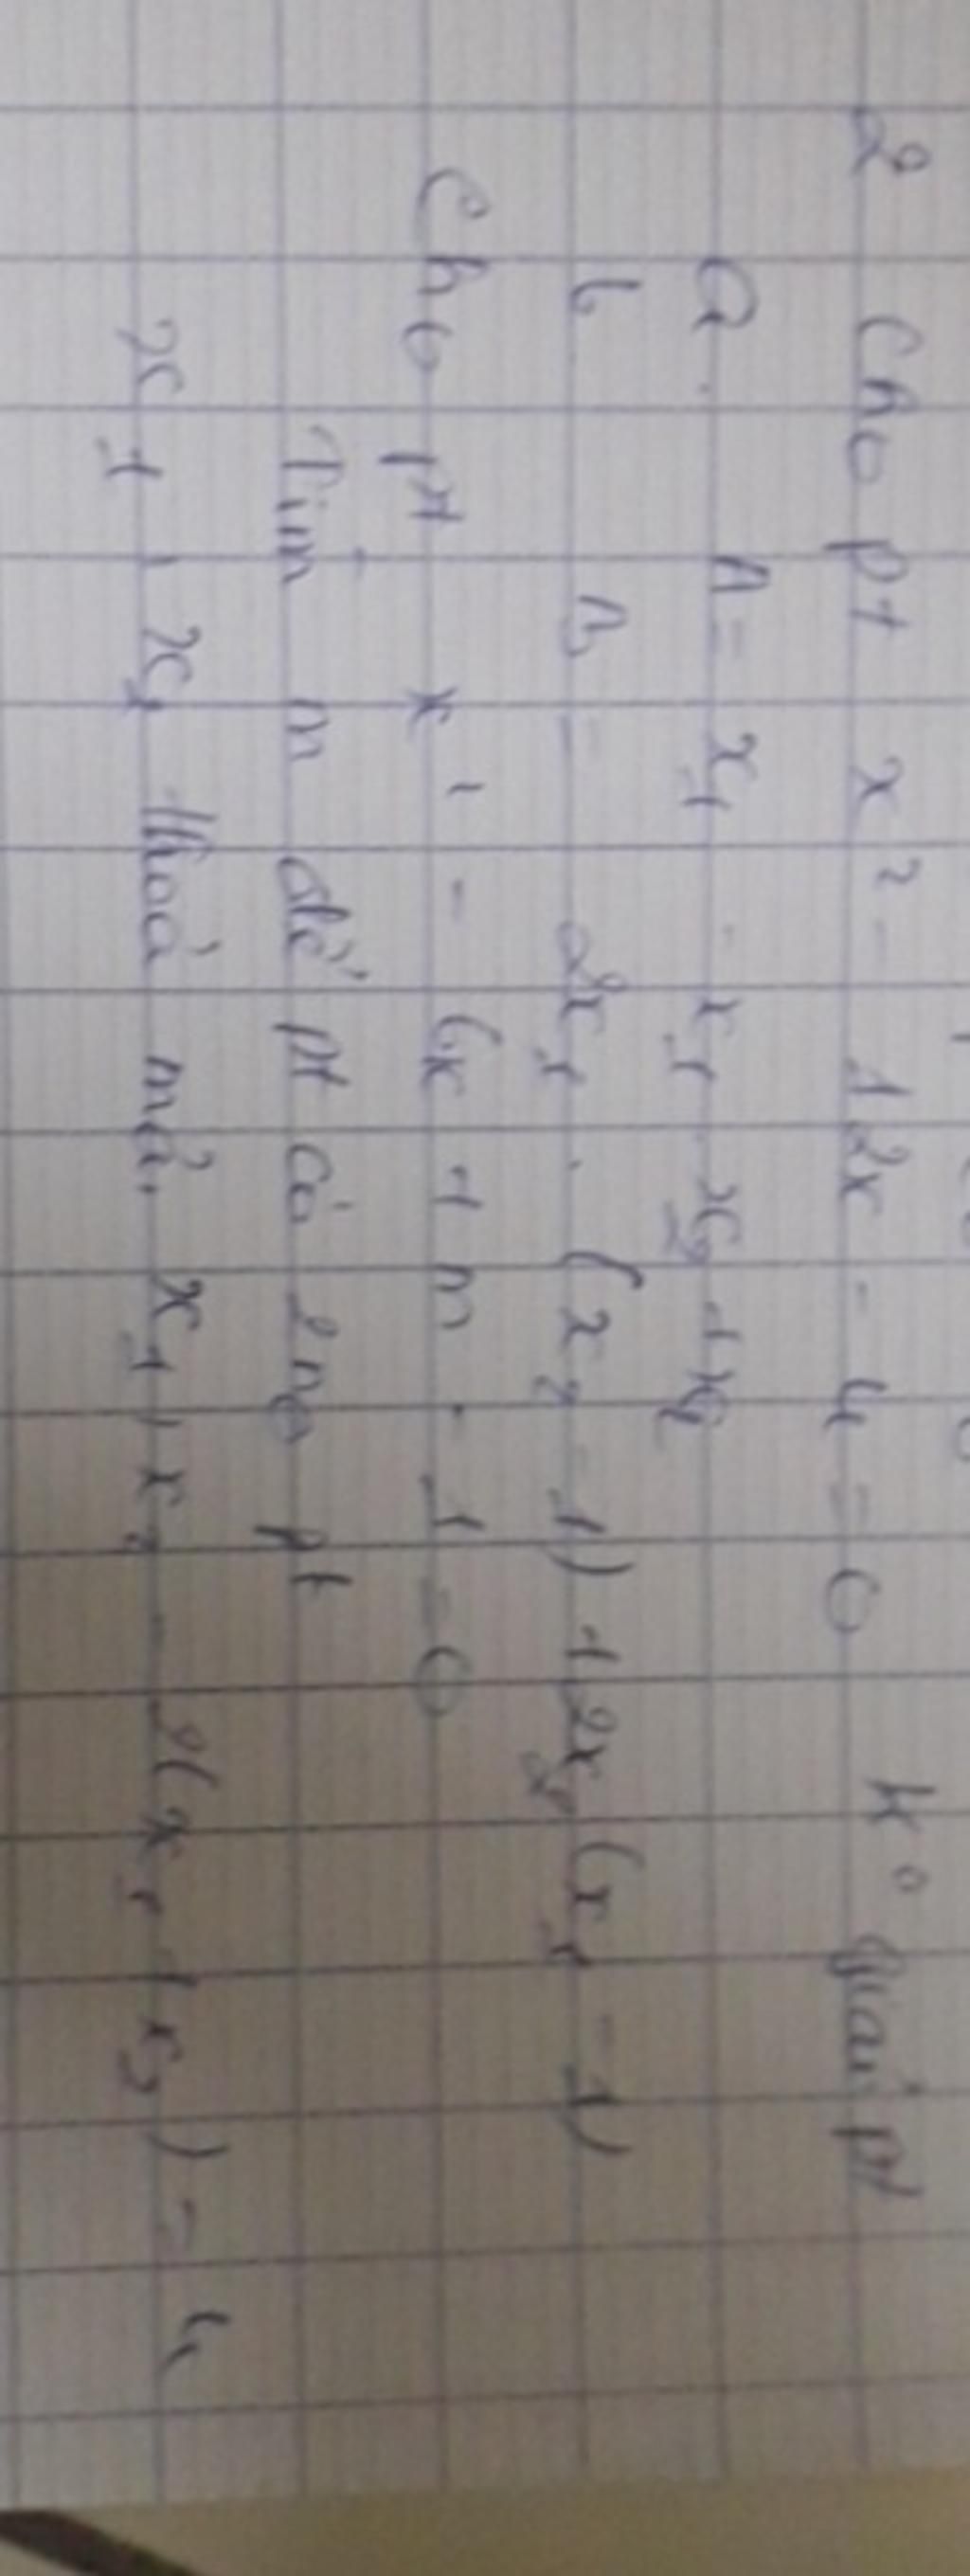 2 Cho pt x² - 12x - 4 = 0 k° giải pt
a. A = x₁ - x₁ x₂ + x₂
b B = 2x₁ . (x₂ - 1) + 2x₂ (x₁ - 1)
Cho pt x² - 6x + m - 1 = 0
Tìm m để pt có 2 no pt
x₁, x₂ thoả mãn x₁, x₂ - 2(x₁ + x₂) = 4